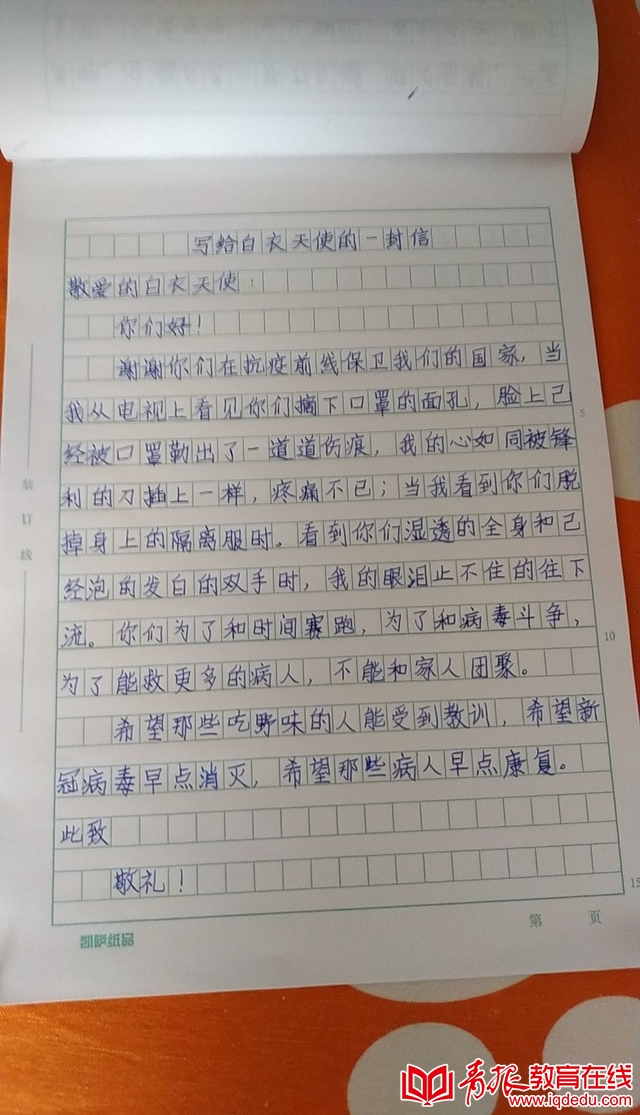 写给白衣天使的一封信
敬爱的白衣天使：
你们好！
谢谢你们在抗疫前线保卫我们的国家，当
我从电视上看见你们摘下口罩的面孔，脸上已
经被口罩勒出了一道道伤痕，我的心如同被锋
利的刀插上一样，疼痛不已；当我看到你们脱
掉身上的隔离服时。看到你们湿透的全身和已
经泡的发白的双手时，我的眼泪止不住的往下
流。你们为了和时间赛跑，为了和病毒斗争，
为了能救更多的病人，不能和家人团聚。
希望那些吃野味的人能受到教训，希望新
冠病毒早点消灭，希望那些病人早点康复。
此致
敬礼！
装订线
5
10
15
第 页
青报教育在线
www.iqdedu.com